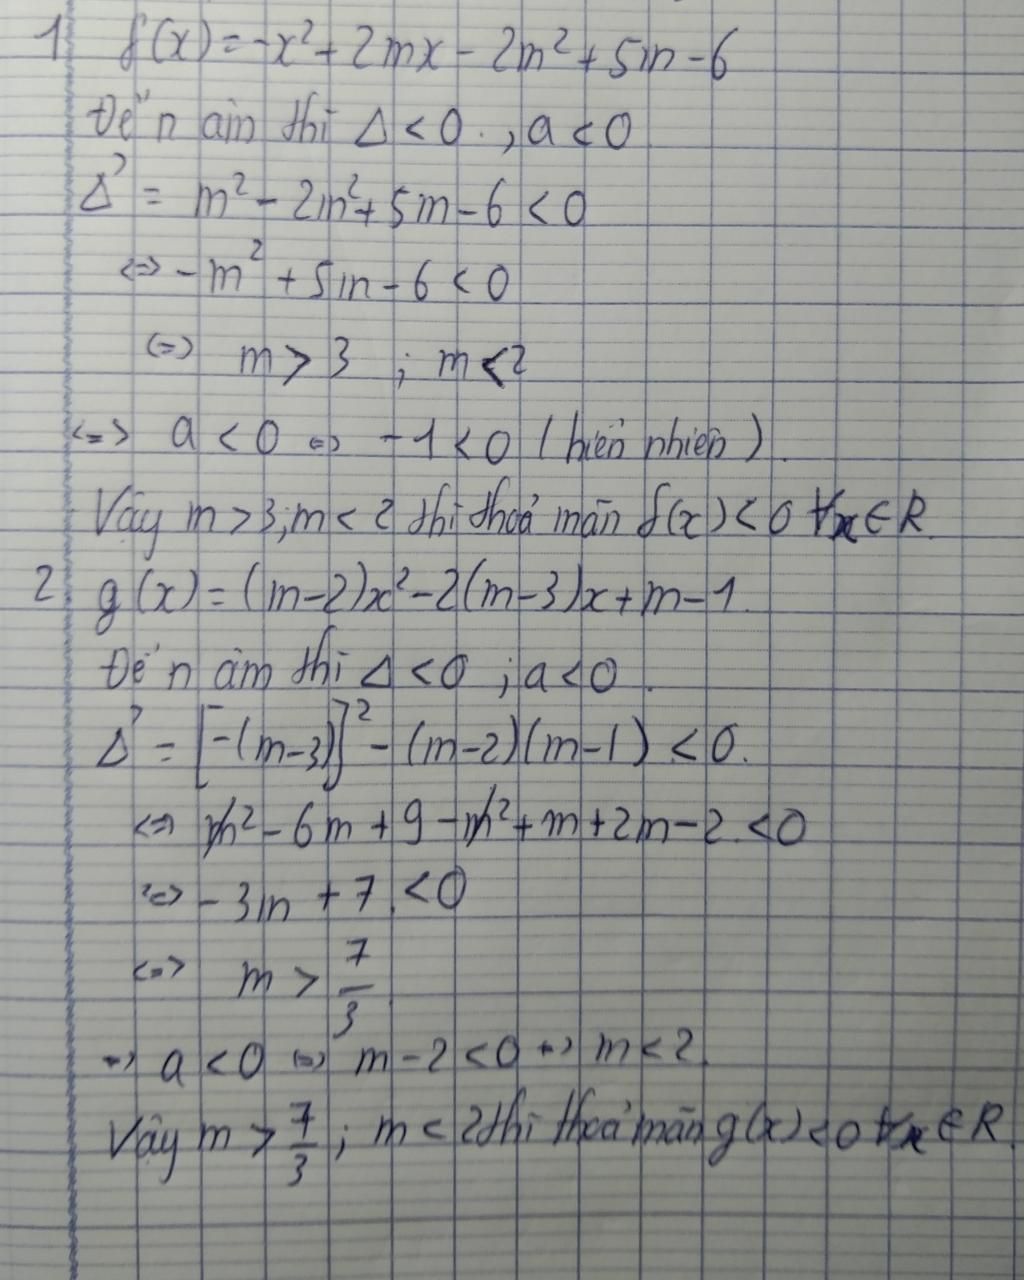 1 f(x)=-x²+2mx-2m²+5m-6
Để n âm thì Δ<0.,a<0
Δ'= m²-2m²+5m-6<0
<=> -m²+5m-6<0
<=> m>3 ; m<2
<=> a<0 <=> -1<0 (hiển nhiên).
Vậy m>3;m<2 thì thoả mãn f(x)<0 ∀x∈R.
2. g(x)=(m-2)x²-2(m-3)x+m-1.
Để n âm thì Δ<0 ;a<0.
Δ'= [-(m-3)]²-(m-2)(m-1)<0.
<=> m²-6m+9-m²+m+2m-2.<0
<=> -3m+7<0
<=> m > 7/3
=> a<0 <=> m-2<0 => m<2.
Vậy m > 7/3 ; m<2 thì thoả mãn g(x)<0 ∀x∈R.